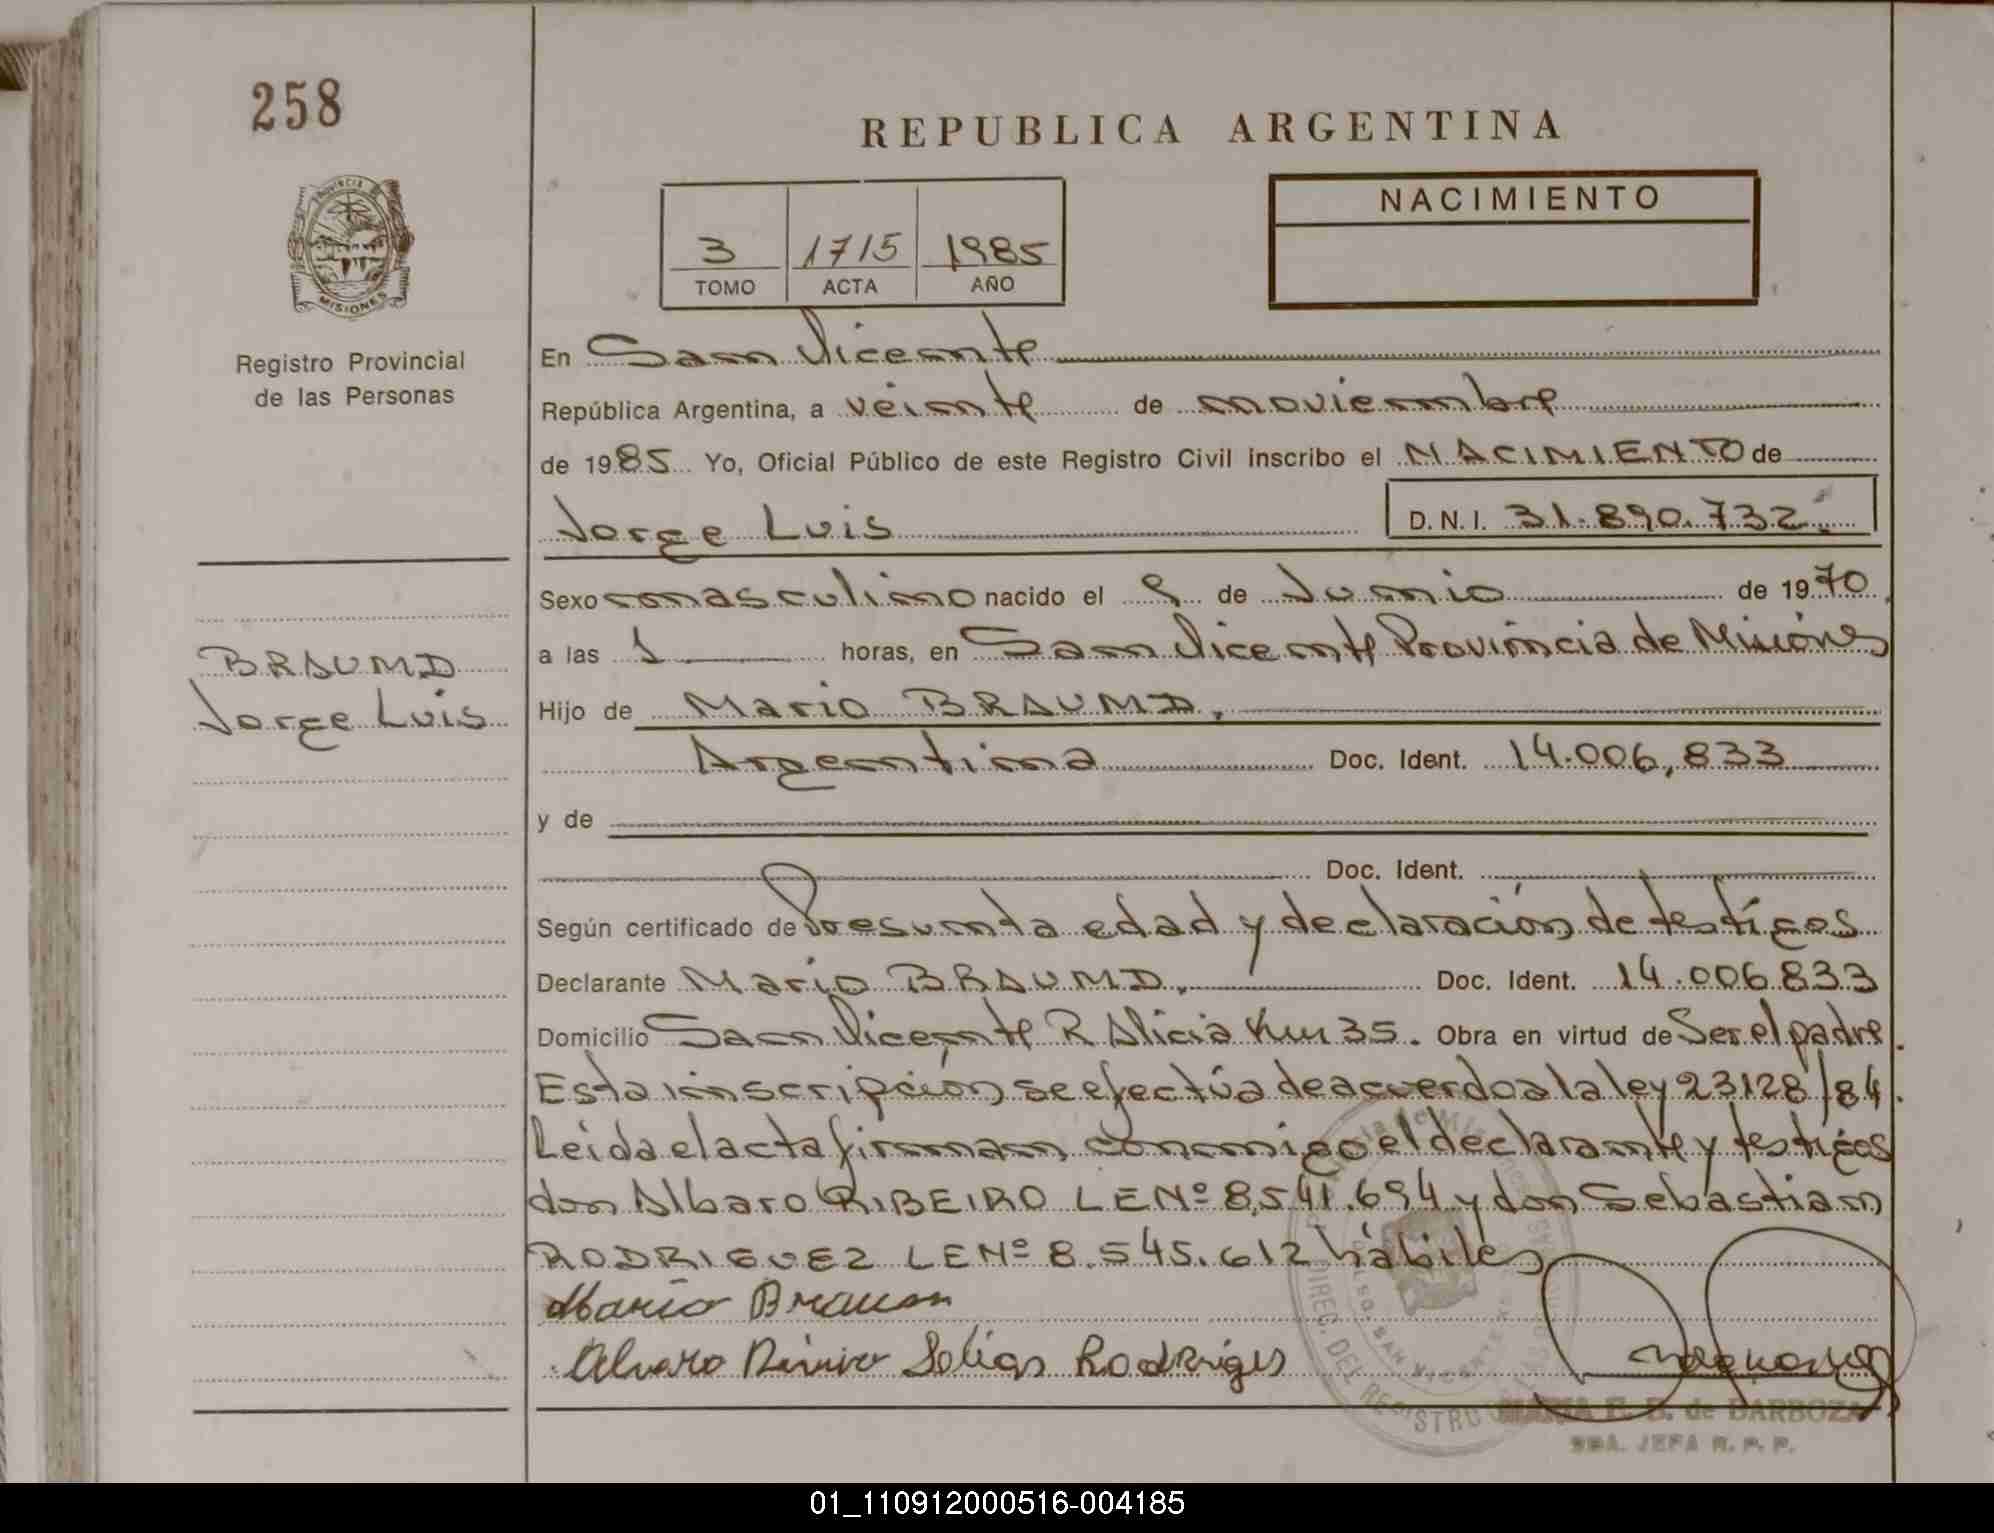 258
REPUBLICA ARGENTINA
PROVINCIA DE
MISIONES
NACIMIENTO
3 1715 1985
TOMO ACTA AÑO
Registro Provincial
de las Personas
En San Vicente
República Argentina, a veinte de noviembre
de 1985 Yo, Oficial Público de este Registro Civil inscribo el NACIMIENTO de
Jorge Luis D.N.I. 31.890.732.
Sexo masculino nacido el 9 de Junio de 1970
a las 1 horas, en San Vicente Provincia de Misiones
BRAUND
Jorge Luis
Hijo de Mario BRAUND,
Argentina Doc. Ident. 14.006,833
y de
Doc. Ident.
Según certificado de Presunta edad y declaración de testigos
Declarante Mario BRAUND, Doc. Ident. 14.006.833
Domicilio San Vicente R. Alicia Km 35. Obra en virtud de Ser el padre.
Esta inscripción se efectúa de acuerdo a la ley 23128/84.
Leida el acta firman conmigo el declarante y testigos
don Albaro RIBEIRO LE Nº 8,541.694 y don Sebastian
RODRIGUEZ LE Nº 8.545.612 hábiles
Mario Braun
Alvaro Rodriges
DIREC. DEL REGISTRO
SAN VICENTE
MARIA E. B. de BARBOZA
SBA. JEFA R. P. P.
01_110912000516-004185